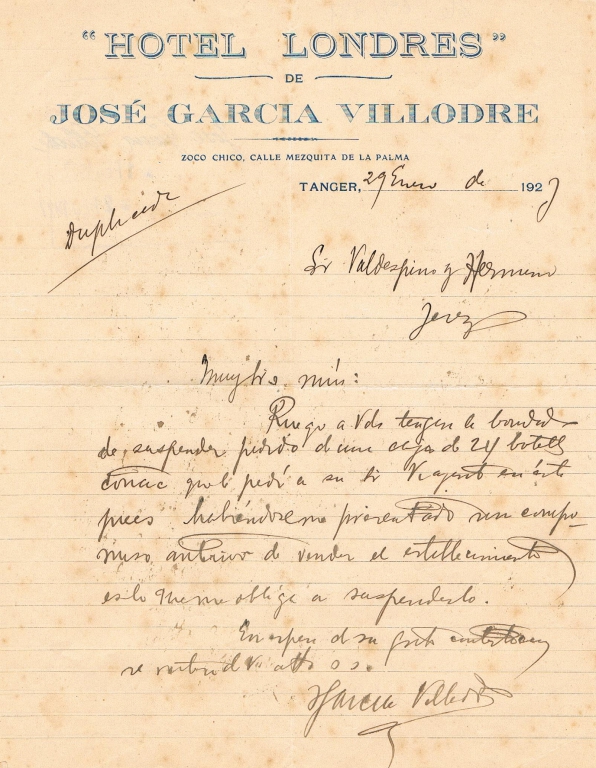 "HOTEL LONDRES"
DE
JOSÉ GARCIA VILLODRE
ZOCO CHICO, CALLE MEZQUITA DE LA PALMA
TANGER, 29 Enero de 1927
Duplicado
Sr Valdespino y Hermano
Jerez
Muy Srs mios:
Ruego a Vds tengan la bondad
de suspender pedido de una caja de 24 botells
coñac que le pedí a su Sr Viajante en ésta
pues habiéndoseme presentado un compro-
miso anterior de vender el establecimiento
esto me obliga a suspenderlo.
En espera de su grata contestacion
se reitera de Vds atto
J Garcia Villodre